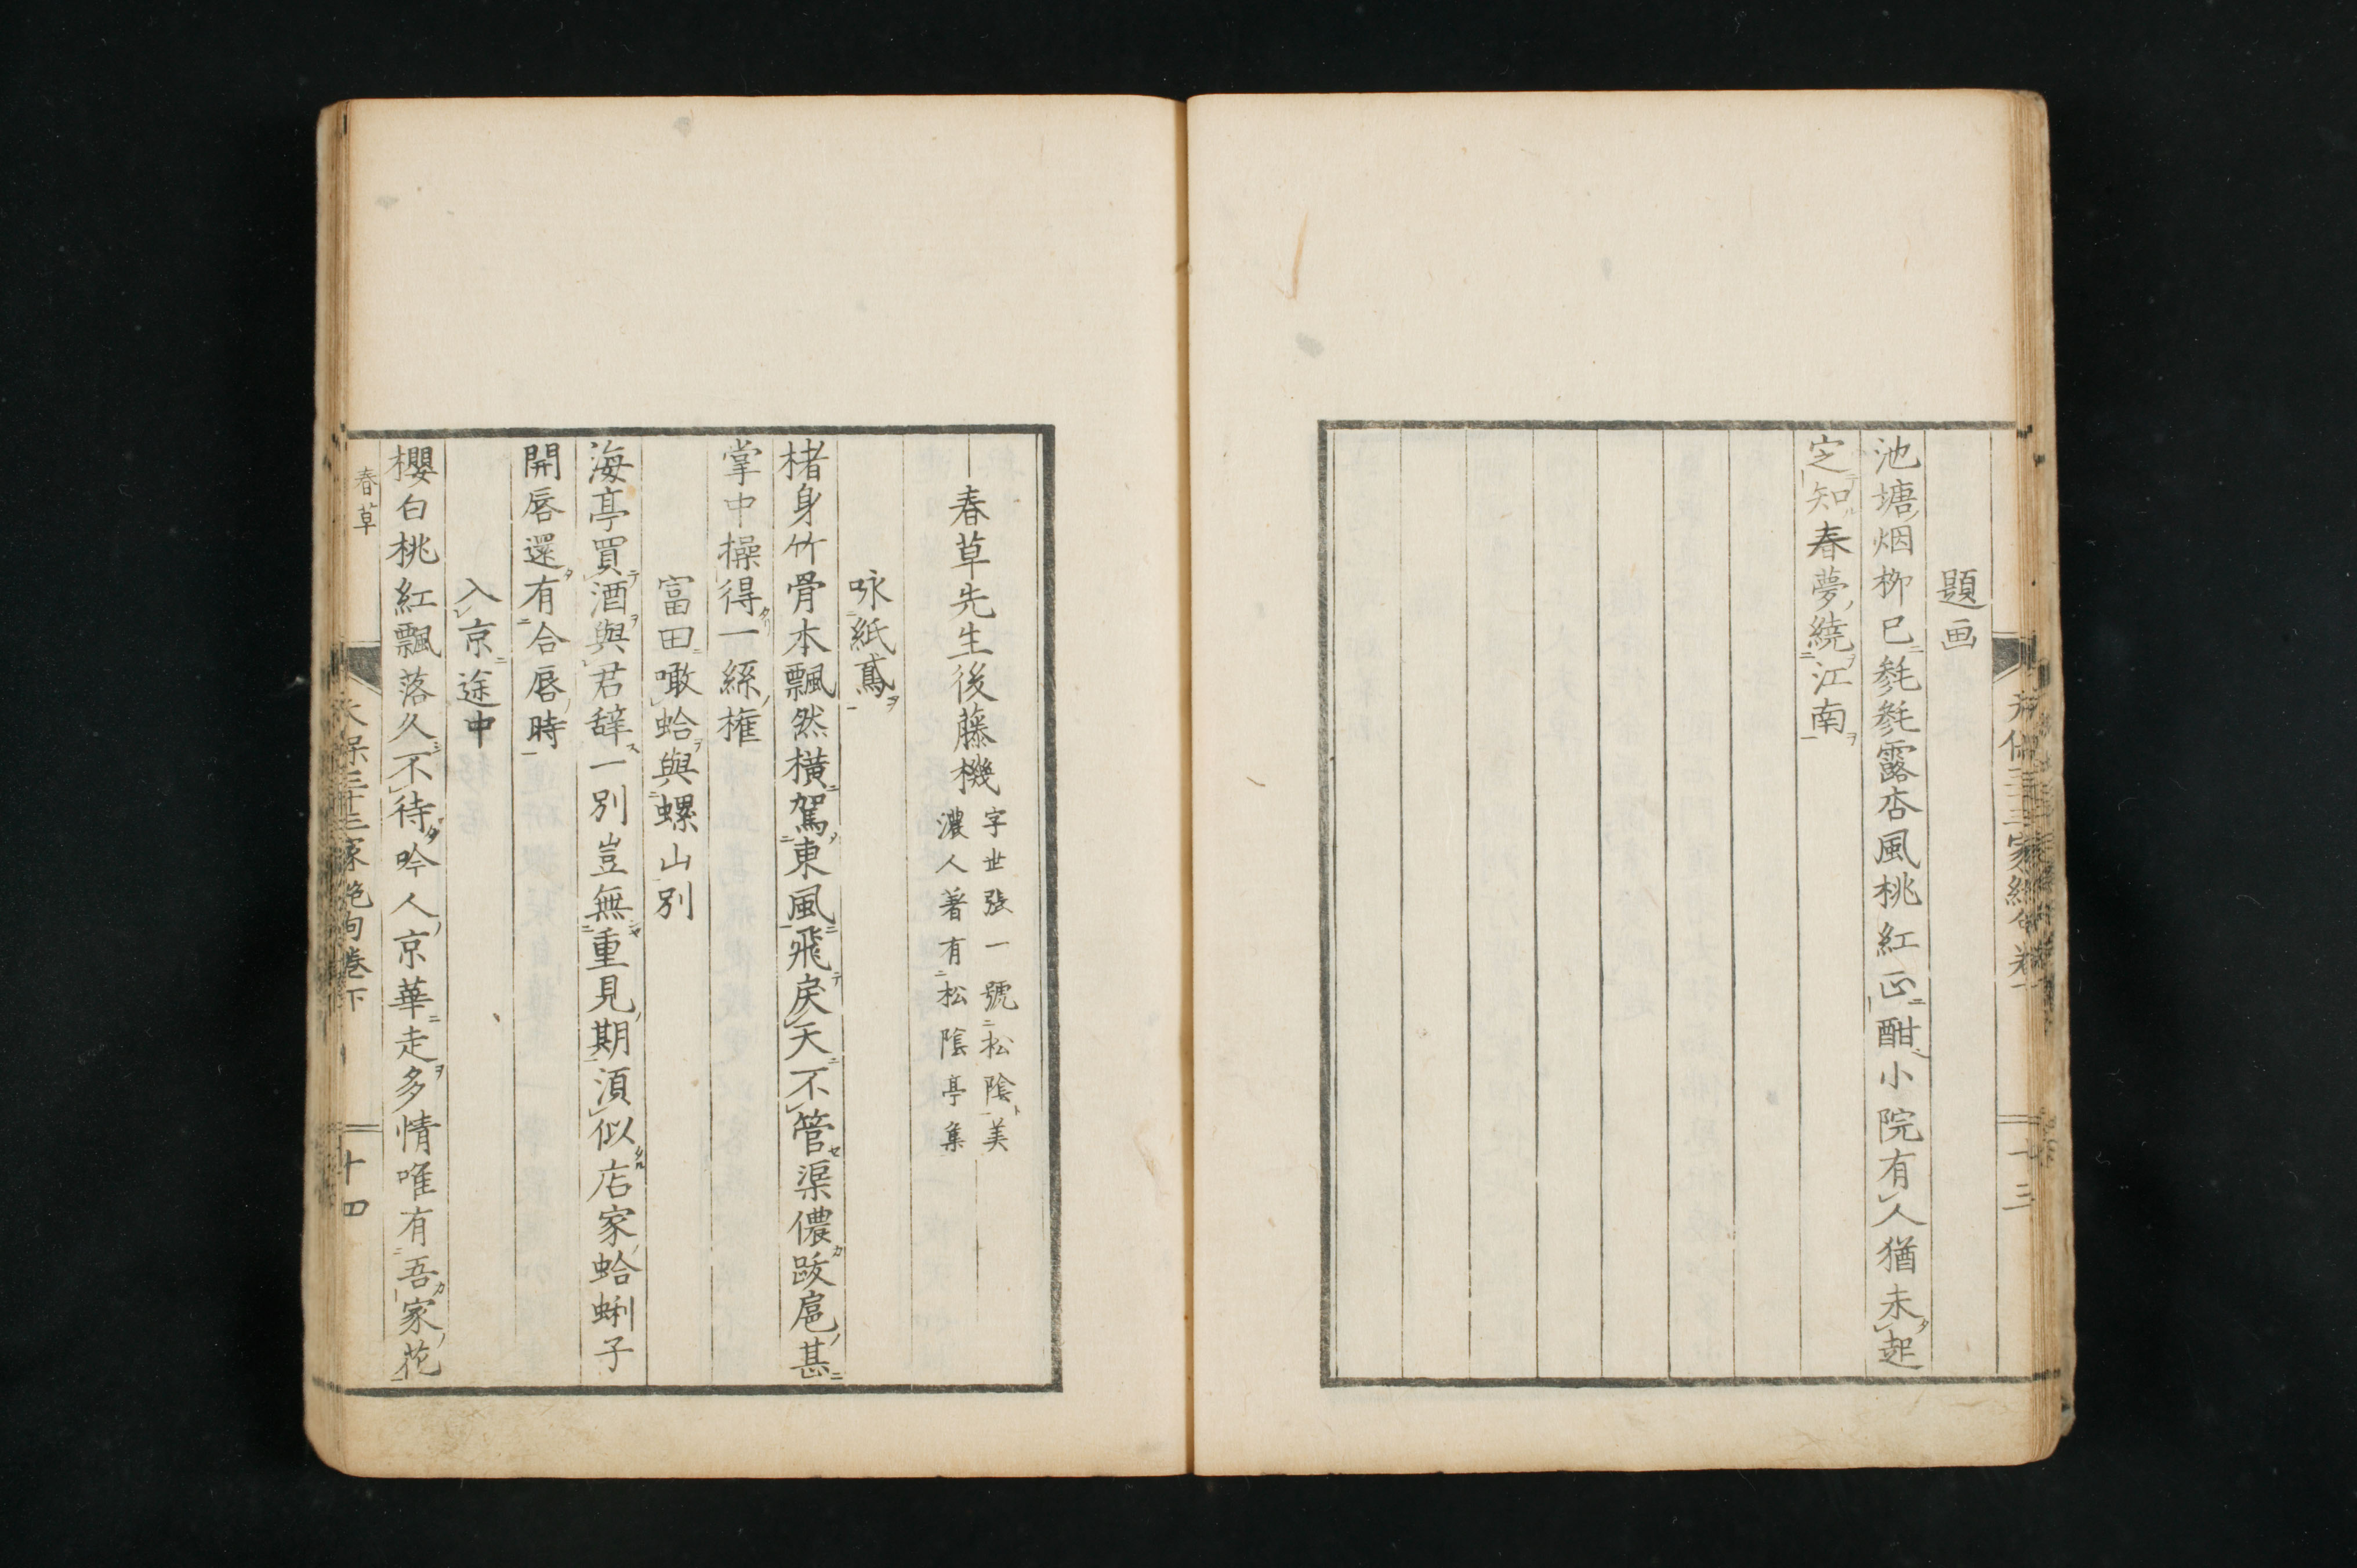 題画
池塘烟柳已毿毿露杏風桃紅正酣小院有人猶未起
定知春夢繞江南
十三
春草先生後藤機
字世張一號松陰美
濃人著有松陰亭集
咏紙鳶
楮身竹骨本飄然橫駕東風飛戾天不管渠儂跋扈甚
掌中操得一絲權
富田噉蛤與螺山別
海亭買酒與君辞一別豈無重見期須似店家蛤蜊子
開唇還有合唇時
入京途中
櫻白桃紅飄落久不待吟人京華走多情唯有吾家花
春草
天保三十三家絶句卷下
十四